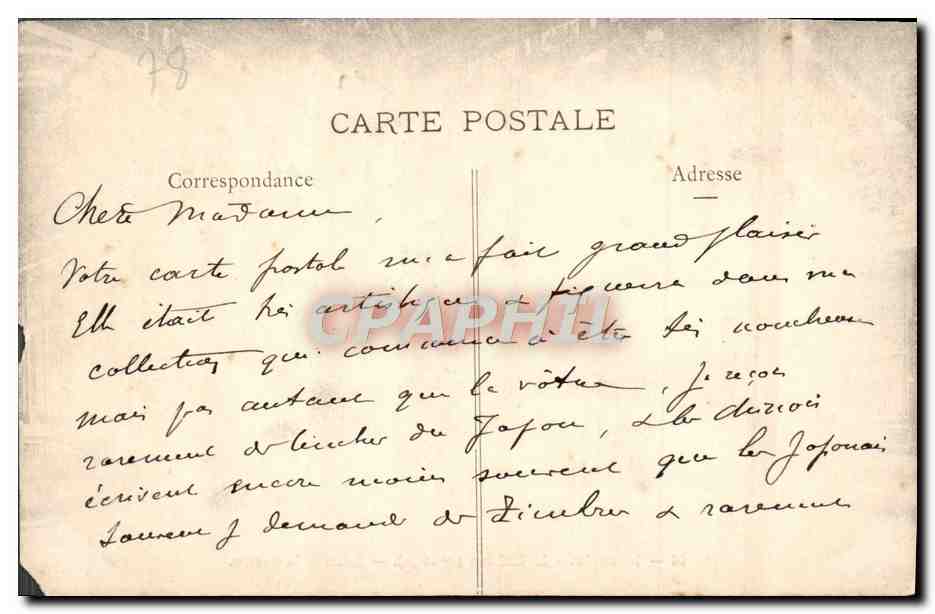 78
CARTE POSTALE
Correspondance
Adresse
Chère Madame,
Votre carte postale m'a fait grand plaisir
Elle était très artistique & figurera dans ma
collection qui commence à être très nombreuse
mais pas autant que la vôtre, Je reçois
rarement de du Japon, & les chinois
écrivent encore moins souvent que les Japonais
Souvent j demande de timbres & rarement
CPAPHIL